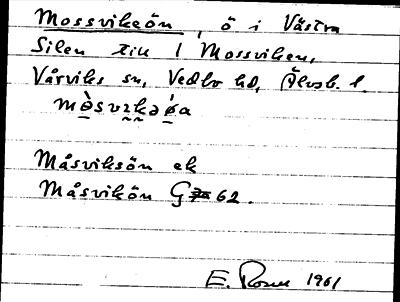 Mossvikeön, ö i Västra
Silen till 1 Mossviken,
Vårviks sn, Vedbo hd, Älvsb. l.
Måsviksön ek
Måsvikön G 62.
E. Rosen 1961